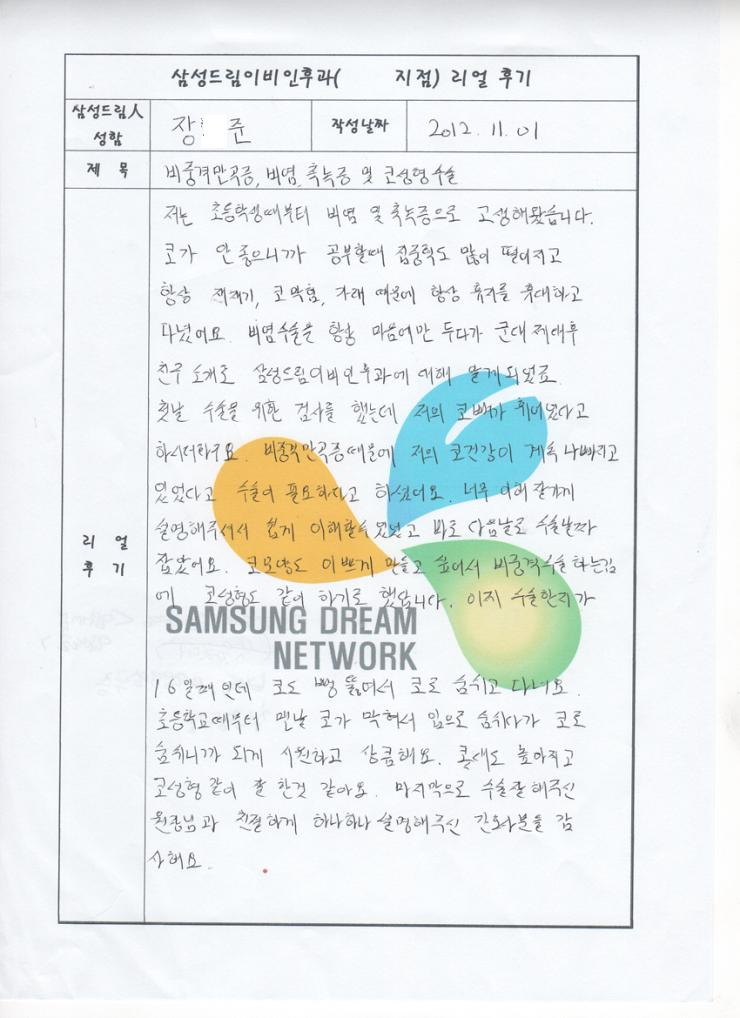 삼성드림이비인후과(      지점) 리얼 후기
삼성드림人
성함
장 준
작성날짜
2012. 11. 01
제 목
비중격만곡증, 비염, 축농증 및 코성형수술
저는 초등학생때부터 비염 및 축농증으로 고생해왔습니다.
코가 안좋으니까 공부할때 집중력도 많이 떨어지고
항상 재채기, 코막힘, 가래 때문에 항상 휴지를 휴대하고
다녔어요. 비염수술을 항상 마음에만 두다가 군대 제대후
친구 소개로 삼성드림이비인후과에 대해 알게되었죠.
첫날 수술을 위한 검사를 했는데 저의 코뼈가 휘어있다고
하시더라구요. 비중격만곡증때문에 저의 코건강이 계속 나빠지고
있었다고 수술이 필요하다고 하셨어요. 너무 이해 잘가게
설명해주셔서 쉽게 이해할수있었고 바로 다음날로 수술날짜
잡았어요. 코모양도 이쁘게 만들고 싶어서 비중격수술하는김
에 코성형도 같이 하기로 했답니다. 이제 수술한지가
리 얼
후 기
SAMSUNG DREAM
NETWORK
16일째인데 코도 뻥 뚫려서 코로 숨쉬고 다녀요.
초등학교때부터 맨날 코가 막혀서 입으로 숨쉬다가 코로
숨쉬니까 되게 시원하고 상큼해요. 콧대도 높아지고
코성형 같이 잘 한것 같아요. 마지막으로 수술잘해주신
원장님과 친절하게 하나하나 설명해주신 간호사분들 감
사해요.